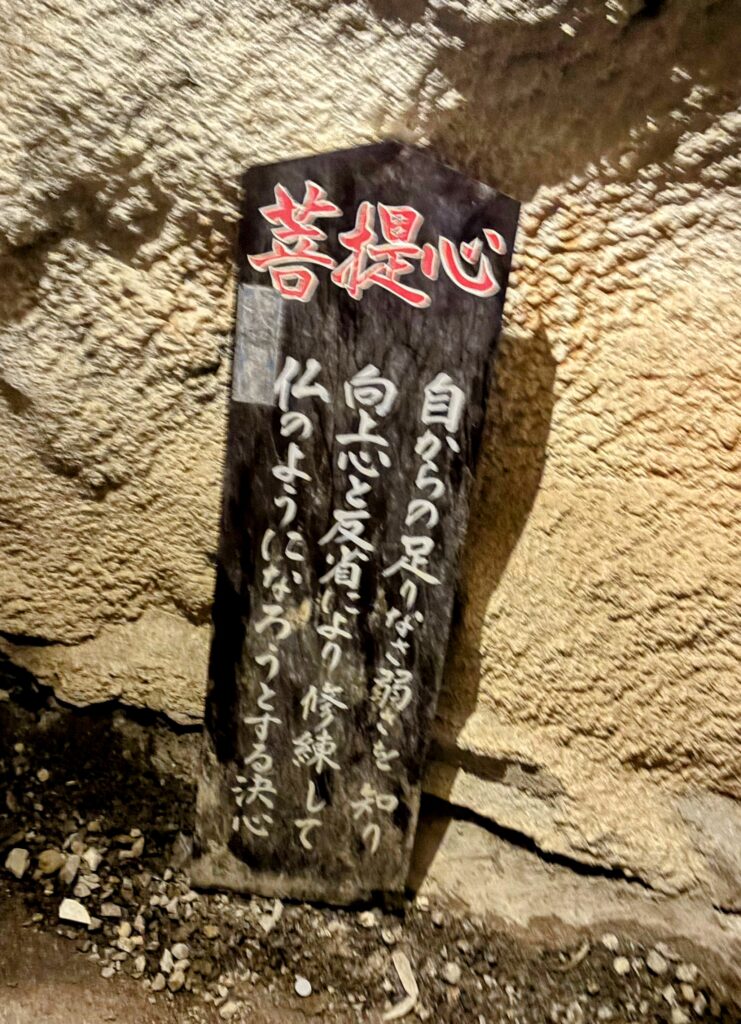 菩提心
自からの足りなさ弱さを知り
向上心と反省により修練して
仏のようになろうとする決心